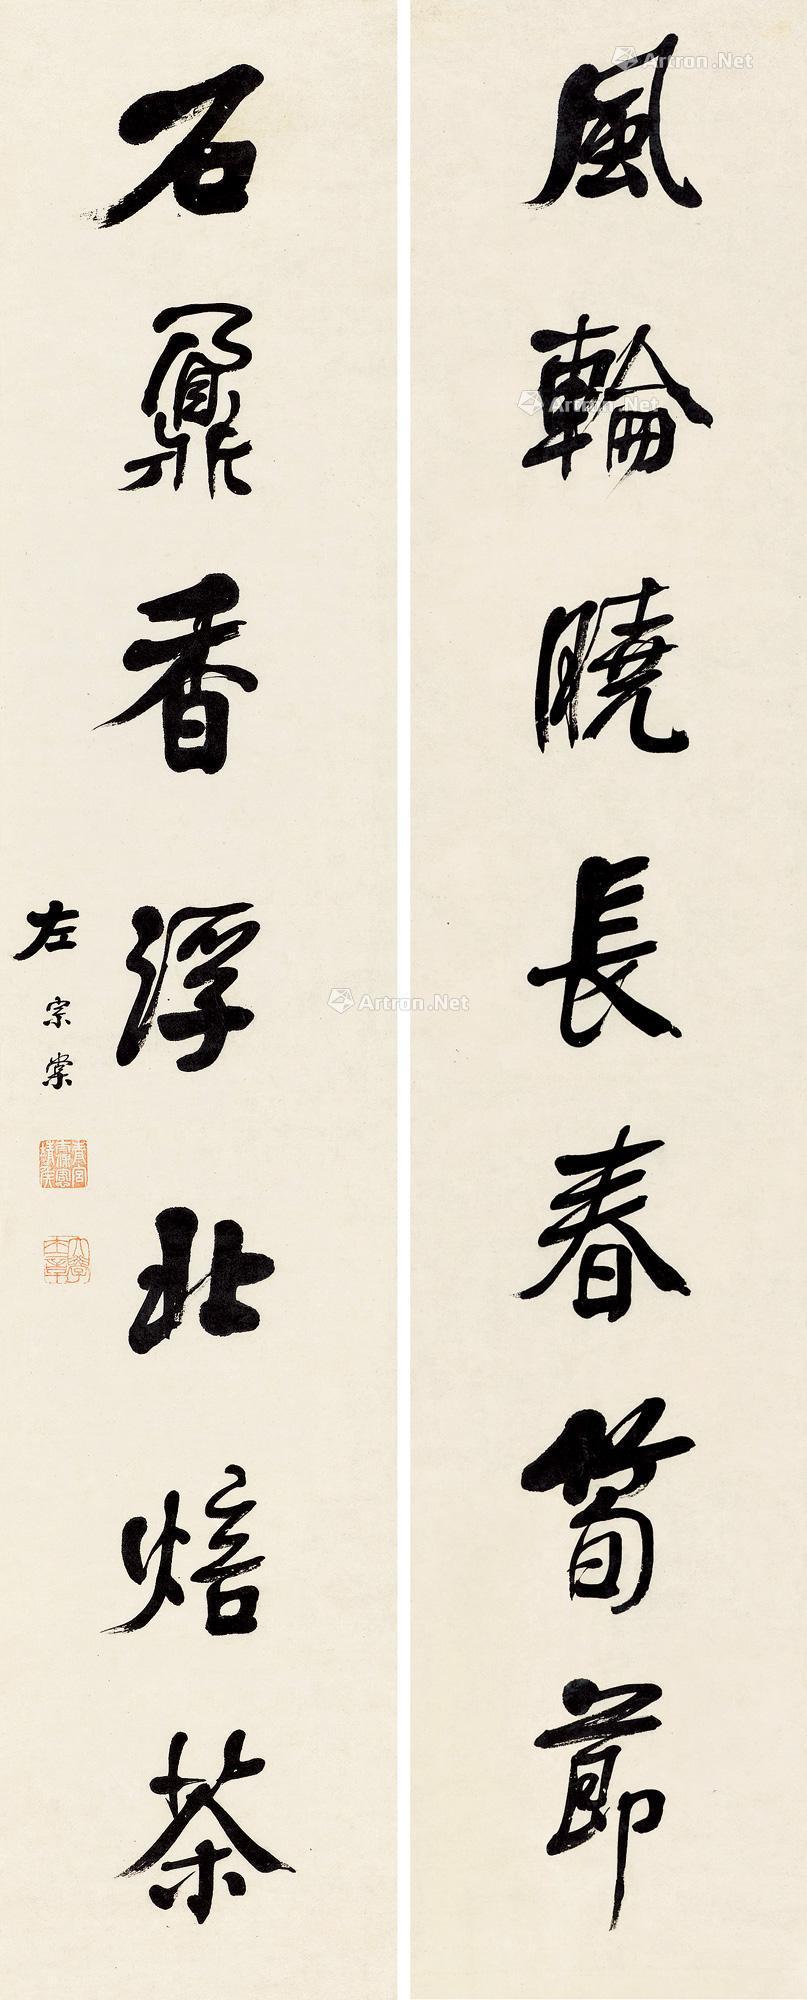 風輪曉長春筍節
石鼐香浮北焙茶
左宗棠
大學士章
Artron.Net
Artron.Net
Artron.Net